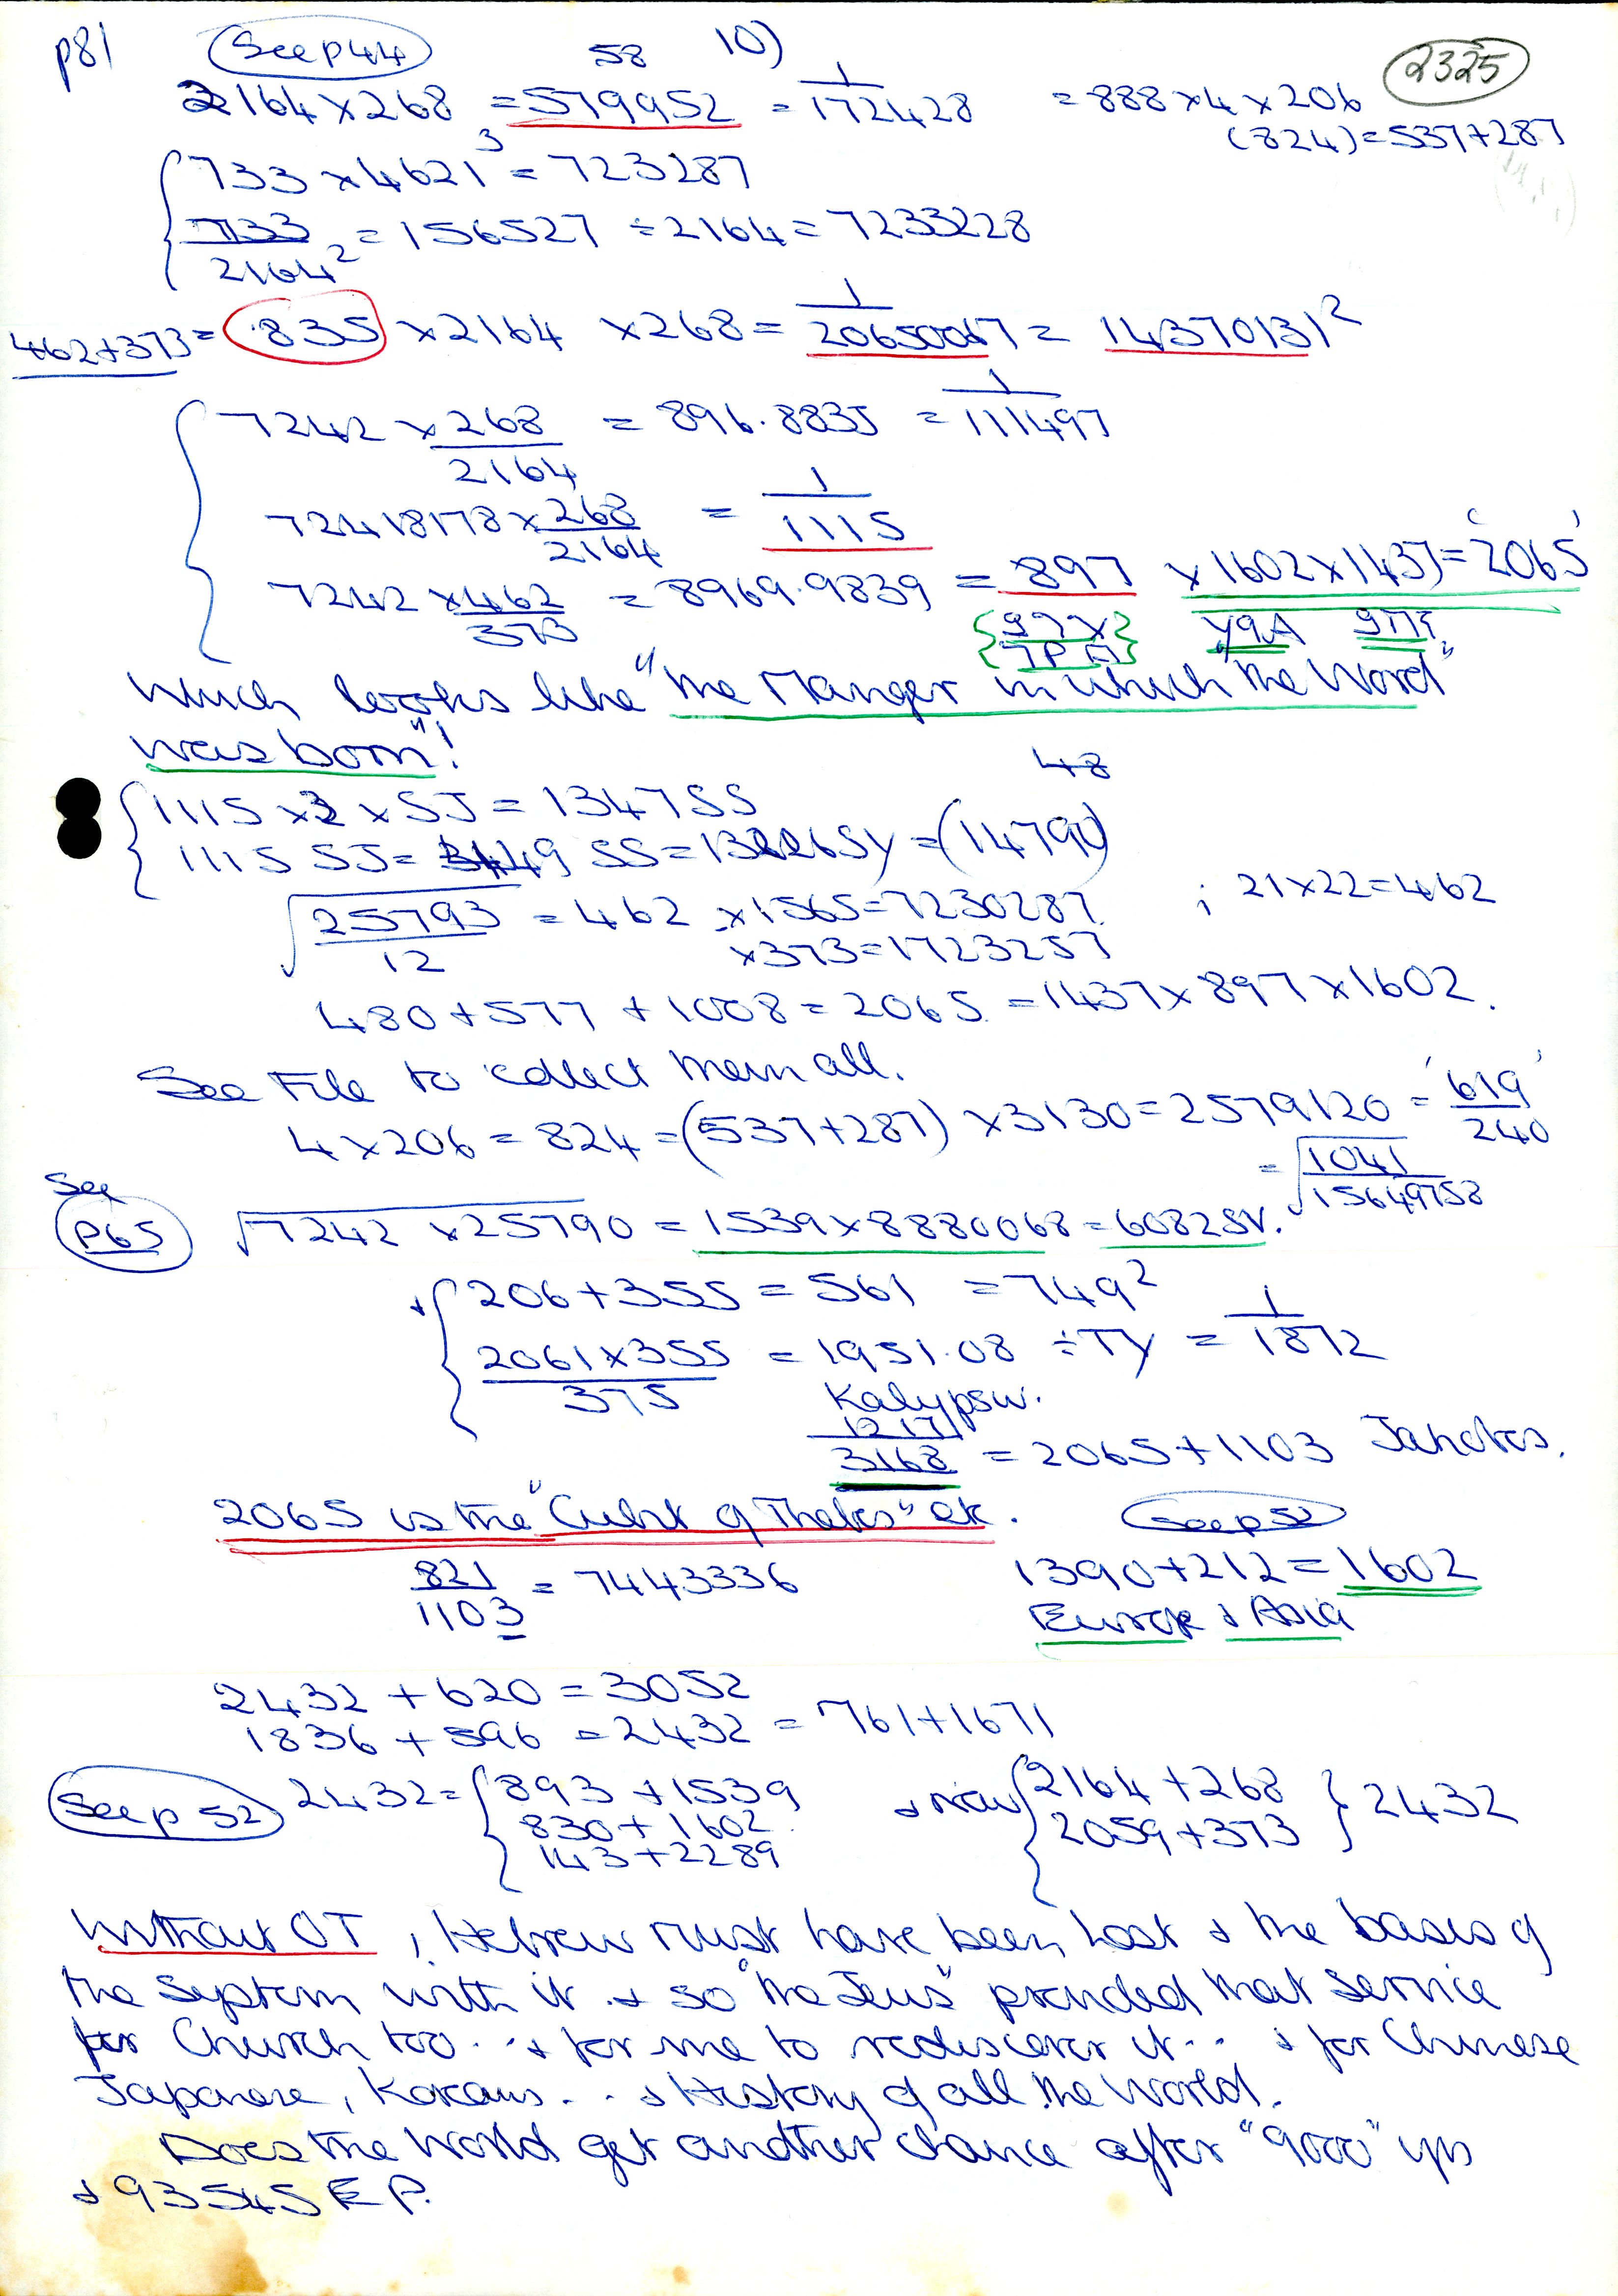 p81 See p44 58 10) 2325
2164 × 268 = 579952 = 1/172428 = 888 × 4 × 206
(824) = 537 + 287
733 × 4621³ = 723287
733/2164² = 156527 ÷ 2164 = 7233228
462 + 373 = .835 × 2164 × 268 = 1/20650067 = 14370131²
7242 × 268/2164 = 896.8835 = 1/111497
72418178 × 268/2164 = 1/1115
7242 × 462/373 = 8969.9839 = 897 × 1602 × 1437 = '2065'
Which looks like "the Manger in which the Word"
was born"!
48
1115 × 2 × SJ = 1347 SS
1115 SJ = 449 SS = 13226SY = (14790)
√25793/12 = 462 × 1565 = 7230287 ; 21 × 22 = 462
× 373 = 1723257
480 + 577 + 1008 = 2065 = 1437 × 897 × 1602.
See File to collect them all.
4 × 206 = 824 = (537 + 287) × 3130 = 2579120 = '619'/240
= √1041/15649758
See p65 √7242 × 25790 = 1539 × 8880068 = 60828V.
+ { 206 + 355 = 561 = 749²
2061 × 355/375 = 1951.08 ÷ TY = 1/1872
Kalypsw.
1217
3168 = 2065 + 1103 Jahotes.
2065 is the "Cubit of Thebes" etc.
See p52
821/1103 = 7443336
1390 + 212 = 1602
Europe & Asia
2432 + 620 = 3052
1836 + 596 = 2432 = 761 + 1671
See p 52 2432 = { 893 + 1539 & now { 2164 + 268 } 2432
830 + 1602 2059 + 373
143 + 2289
Without OT, Hebrew must have been lost & the basis of
the System with it. & so "the Jews" provided that service
for Church too.. & for me to rediscover it.. & for Chinese
Japanese, Koreans.. & History of all the World.
Does the World get another chance after "9000" yrs
& 93545 E P.